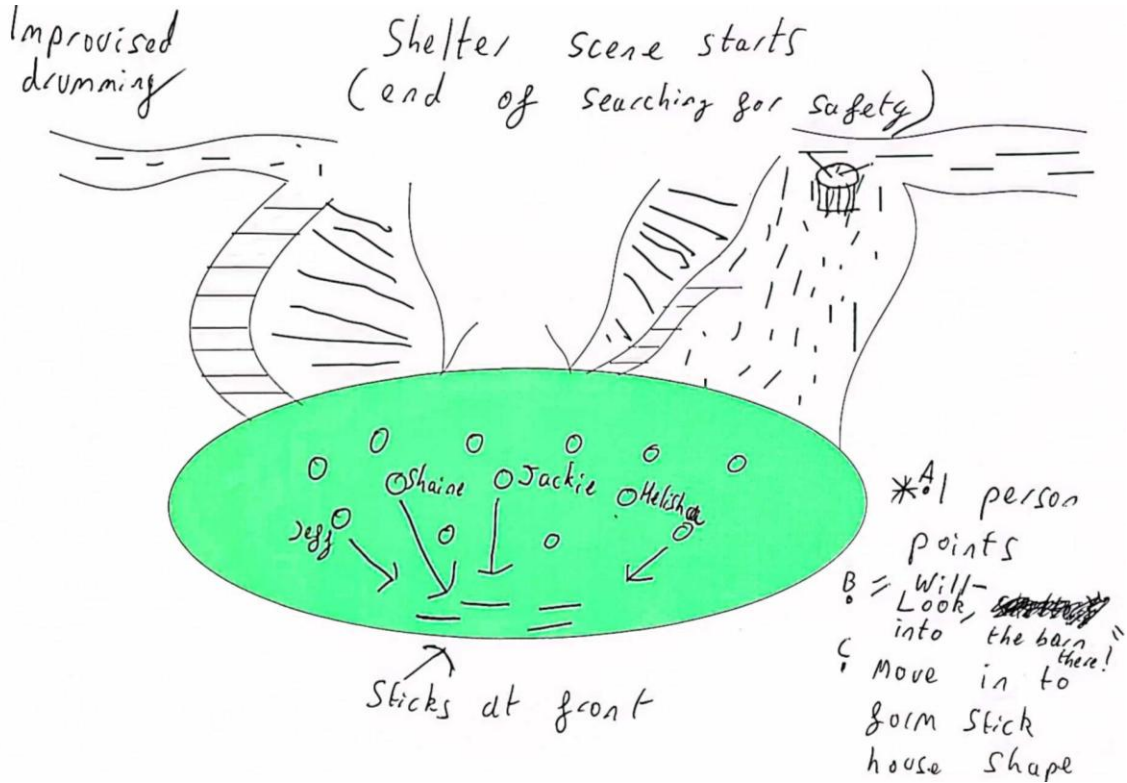 Improvised
drumming
Shelter scene starts
(end of searching for safety)
Shaine
Jackie
Helisha
Jeff
Sticks at front
*A. 1 person
points
B. "Will-
Look,
into the barn"
there!
C. Move in to
form stick
house shape